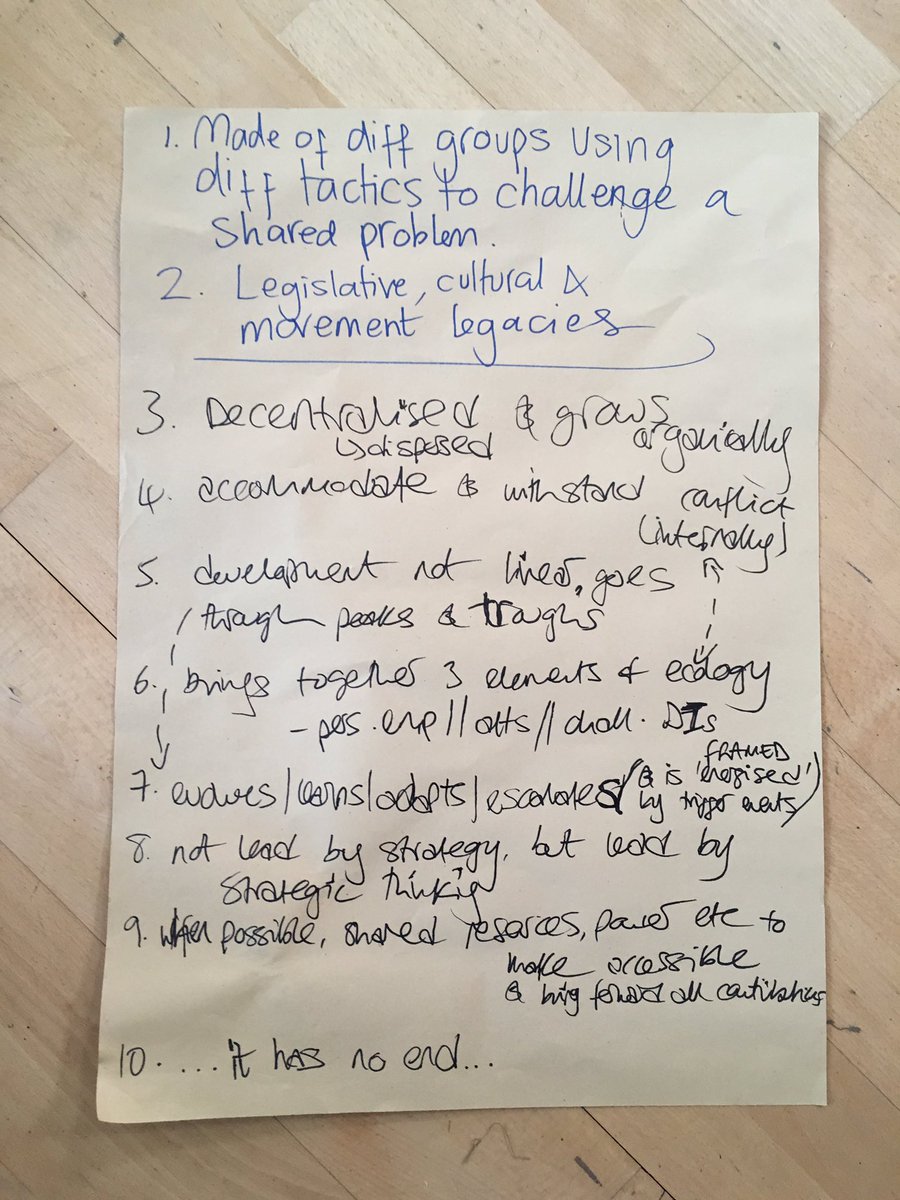 1. Made of diff groups using
diff tactics to challenge a
shared problem.
2. Legislative, cultural &
movement legacies
3. Decentralised & grows
organically
↳dispersed
4. accommodate & withstand conflict
(internally)
5. development not linear, goes
through peaks & troughs
6. brings together 3 elements of ecology
- pers. exp // alts // chall. DIs
7. evolves/learns/adapts/escalates (& is 'energised')
FRAMED
by trigger events
8. not lead by strategy, but lead by
strategic thinking
9. When possible, shared resources, power etc to
make accessible
& bring forward all contributions
10. ...it has no end...